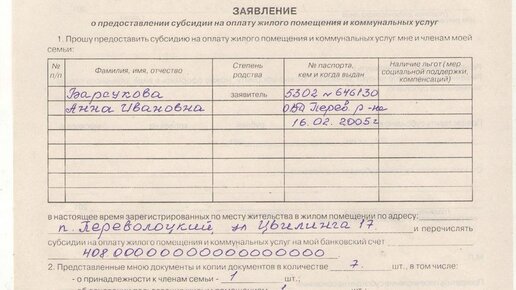 ЗАЯВЛЕНИЕ
о предоставлении субсидии на оплату жилого помещения и коммунальных услуг
1. Прошу предоставить субсидию на оплату жилого помещения и коммунальных услуг мне и членам моей
семьи:
№ п/п Фамилия, имя, отчество Степень родства № паспорта, кем и когда выдан Наличие льгот (мер социальной поддержки, компенсаций)
Барсукова заявитель 5302 № 646130
Анна Ивановна ОВД Перев. р-на
16.02.2005г
в настоящее время зарегистрированных по месту жительства в жилом помещении по адресу:
п. Переволоцкий, Цвилинга 17 и перечислять
субсидии на оплату жилого помещения и коммунальных услуг на мой банковский счет
40800000000000000000
2. Представленные мною документы и копии документов в количестве 7 шт., в том числе:
- о принадлежности к членам семьи - 1 шт.;